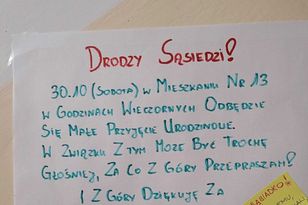 DRODZY SĄSIEDZI!
30.10 (SOBOTA) W MIESZKANIU NR 13
W GODZINACH WIECZORNYCH ODBĘDZIE
SIĘ MAŁE PRZYJĘCIE URODZINOWE.
W ZWIĄZKU Z TYM MOŻE BYĆ TROCHĘ
GŁOŚNIEJ, ZA CO Z GÓRY PRZEPRASZAM!
I Z GÓRY DZIĘKUJĘ ZA